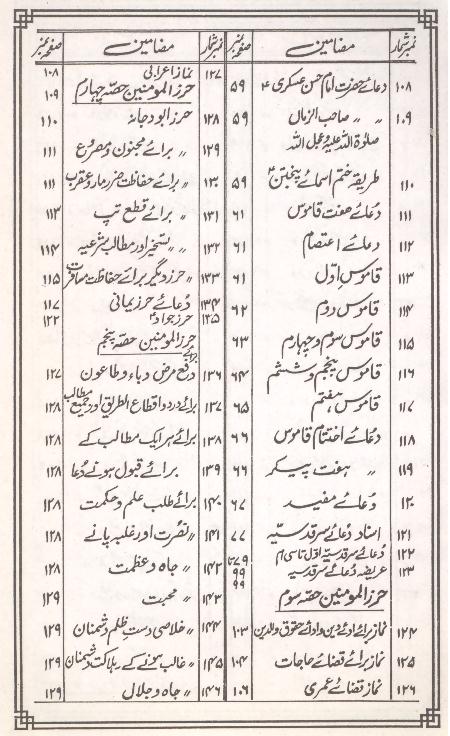 نمبر شمار مضامین صفحہ نمبر
۱۰۸ دعائے حضرت امام حسن عسکریؑ ۵۹
۱۰۹ 〃 〃 صاحب الزماں ۵۹
صلوٰۃ اللہ علیہ وعجل اللہ
۱۱۰ طریقہ ختم اسمائے پنجتنؑ ۵۹
۱۱۱ دعائے ہفت قاموس ۶۱
۱۱۲ دعائے اعتصام ۶۱
۱۱۳ قاموس اوّل ۶۱
۱۱۴ قاموس دوم ۶۲
۱۱۵ قاموس سوم و چہارم ۶۳
۱۱۶ قاموس پنجم و ششم ۶۴
۱۱۷ قاموس ہفتم ۶۵
۱۱۸ دعائے اختتام قاموس ۶۶
۱۱۹ 〃 ہفت پیکر ۶۶
۱۲۰ دعائے مفید ۶۷
۱۲۱ اسناد دعائے سرقدسیہ ۷۷
۱۲۲ دعائے سرقدسیہ اوّل تا سی ام ۷۹ تا ۹۹
۱۲۳ عریضہ دعائے سرقدسیہ ۹۹
حرز المومنین حصہ سوم
۱۲۴ نماز برائے ادائے دین و ادائے حقوق والدین ۱۰۳
۱۲۵ نماز برائے قضائے حاجات ۱۰۴
۱۲۶ نماز قضائے عمری ۱۰۶
نمبر شمار مضامین صفحہ نمبر
۱۲۷ نماز اعرابی ۱۰۸
حرز المومنین حصہ چہارم ۱۰۹
۱۲۸ حرز ابودجانہ ۱۱۰
۱۲۹ 〃 برائے مجنون و مصروع ۱۱۱
۱۳۰ 〃 برائے حفاظت ضرر مار و عقرب ۱۱۱
۱۳۱ 〃 برائے قطع تپ ۱۱۳
۱۳۲ 〃 〃 تسخیر اور مطالب شرعیہ ۱۱۴
۱۳۳ 〃 حرز دیگر برائے حفاظت مسافرت ۱۱۵
۱۳۴ دعائے حرز یمانی ۱۱۷
۱۳۵ حرز جوادؑ ۱۲۲
حرز المومنین حصہ پنجم
۱۳۶ برائے دفع مرض وباء و طاعون ۱۲۷
۱۳۷ برائے درد و اقطاع الطریق اور جمیع مطالب ۱۲۸
۱۳۸ برائے ہر ایک مطالب کے ۱۲۸
۱۳۹ برائے قبول ہونے دعا ۱۲۸
۱۴۰ برائے طلب علم و حکمت ۱۲۸
۱۴۱ 〃 نصرت اور غلبہ پانے ۱۲۸
۱۴۲ 〃 جاہ و عظمت ۱۲۸
۱۴۳ 〃 محبت ۱۲۹
۱۴۴ 〃 خلاصی دست ظلم دشمنان ۱۲۹
۱۴۵ 〃 غالب ہونے کے وہلاکت دشمنان ۱۲۹
۱۴۶ 〃 جاہ و جلال ۱۲۹